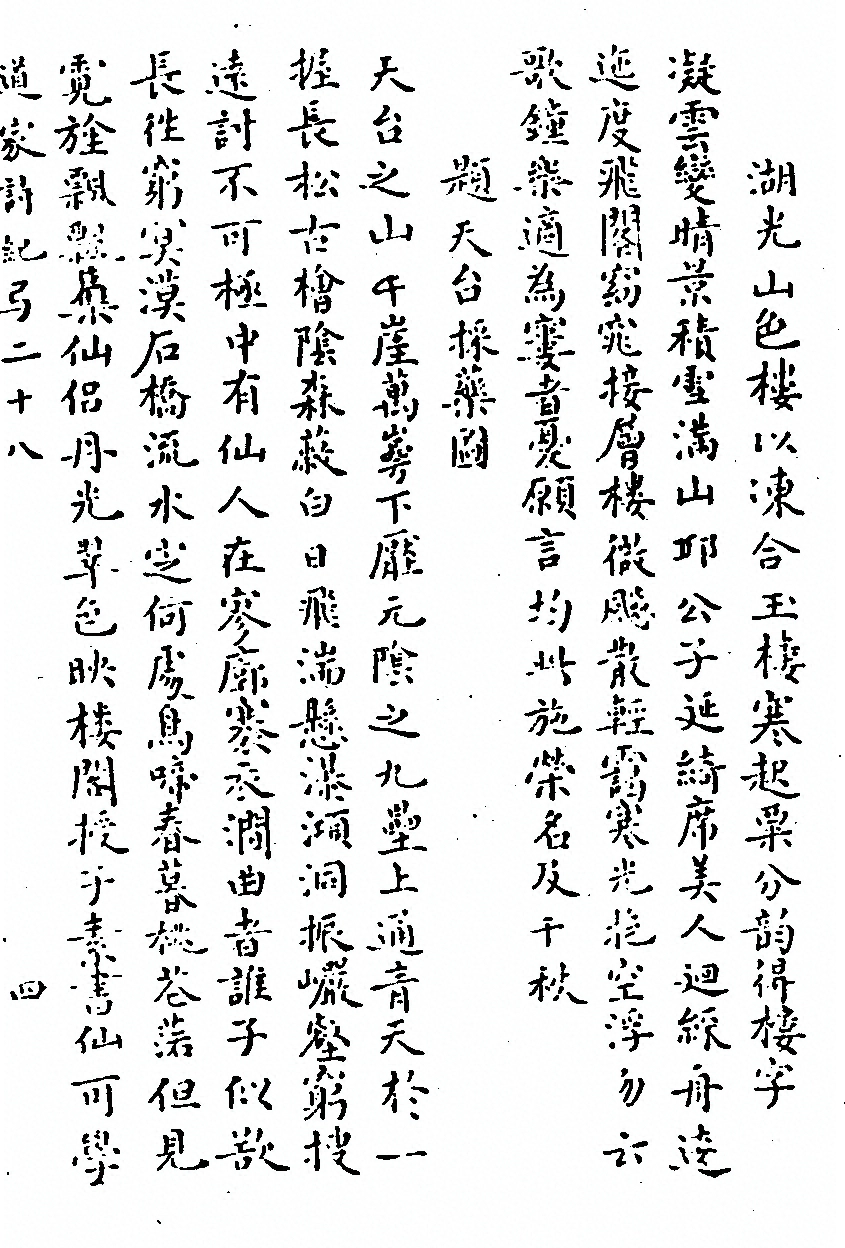 湖光山色樓以凍合玉樓寒起粟分韵得樓字
凝雲變晴景積雪滿山邱公子延綺席美人迴綵舟逶
迤度飛閣窈窕接層樓微颸散輕靄寒光挹空浮勿云
歌鐘樂適為窶者憂願言均此施榮名及千秋
題天台採藥圖
天台之山千崖萬壑下壓元陰之九壘上通青天於一
握長松古檜陰森蔽白日飛湍懸瀑澒洞振巖壑窮搜
遠討不可極中有仙人在寥廓褰衣澗曲者誰子似欲
長往窮冥漠石橋流水定何處鳥啼春暮桃花落但見
霓旌飄飄集仙侶丹光翠色映樓閣授子素書仙可學
道家詩紀弓二十八 四